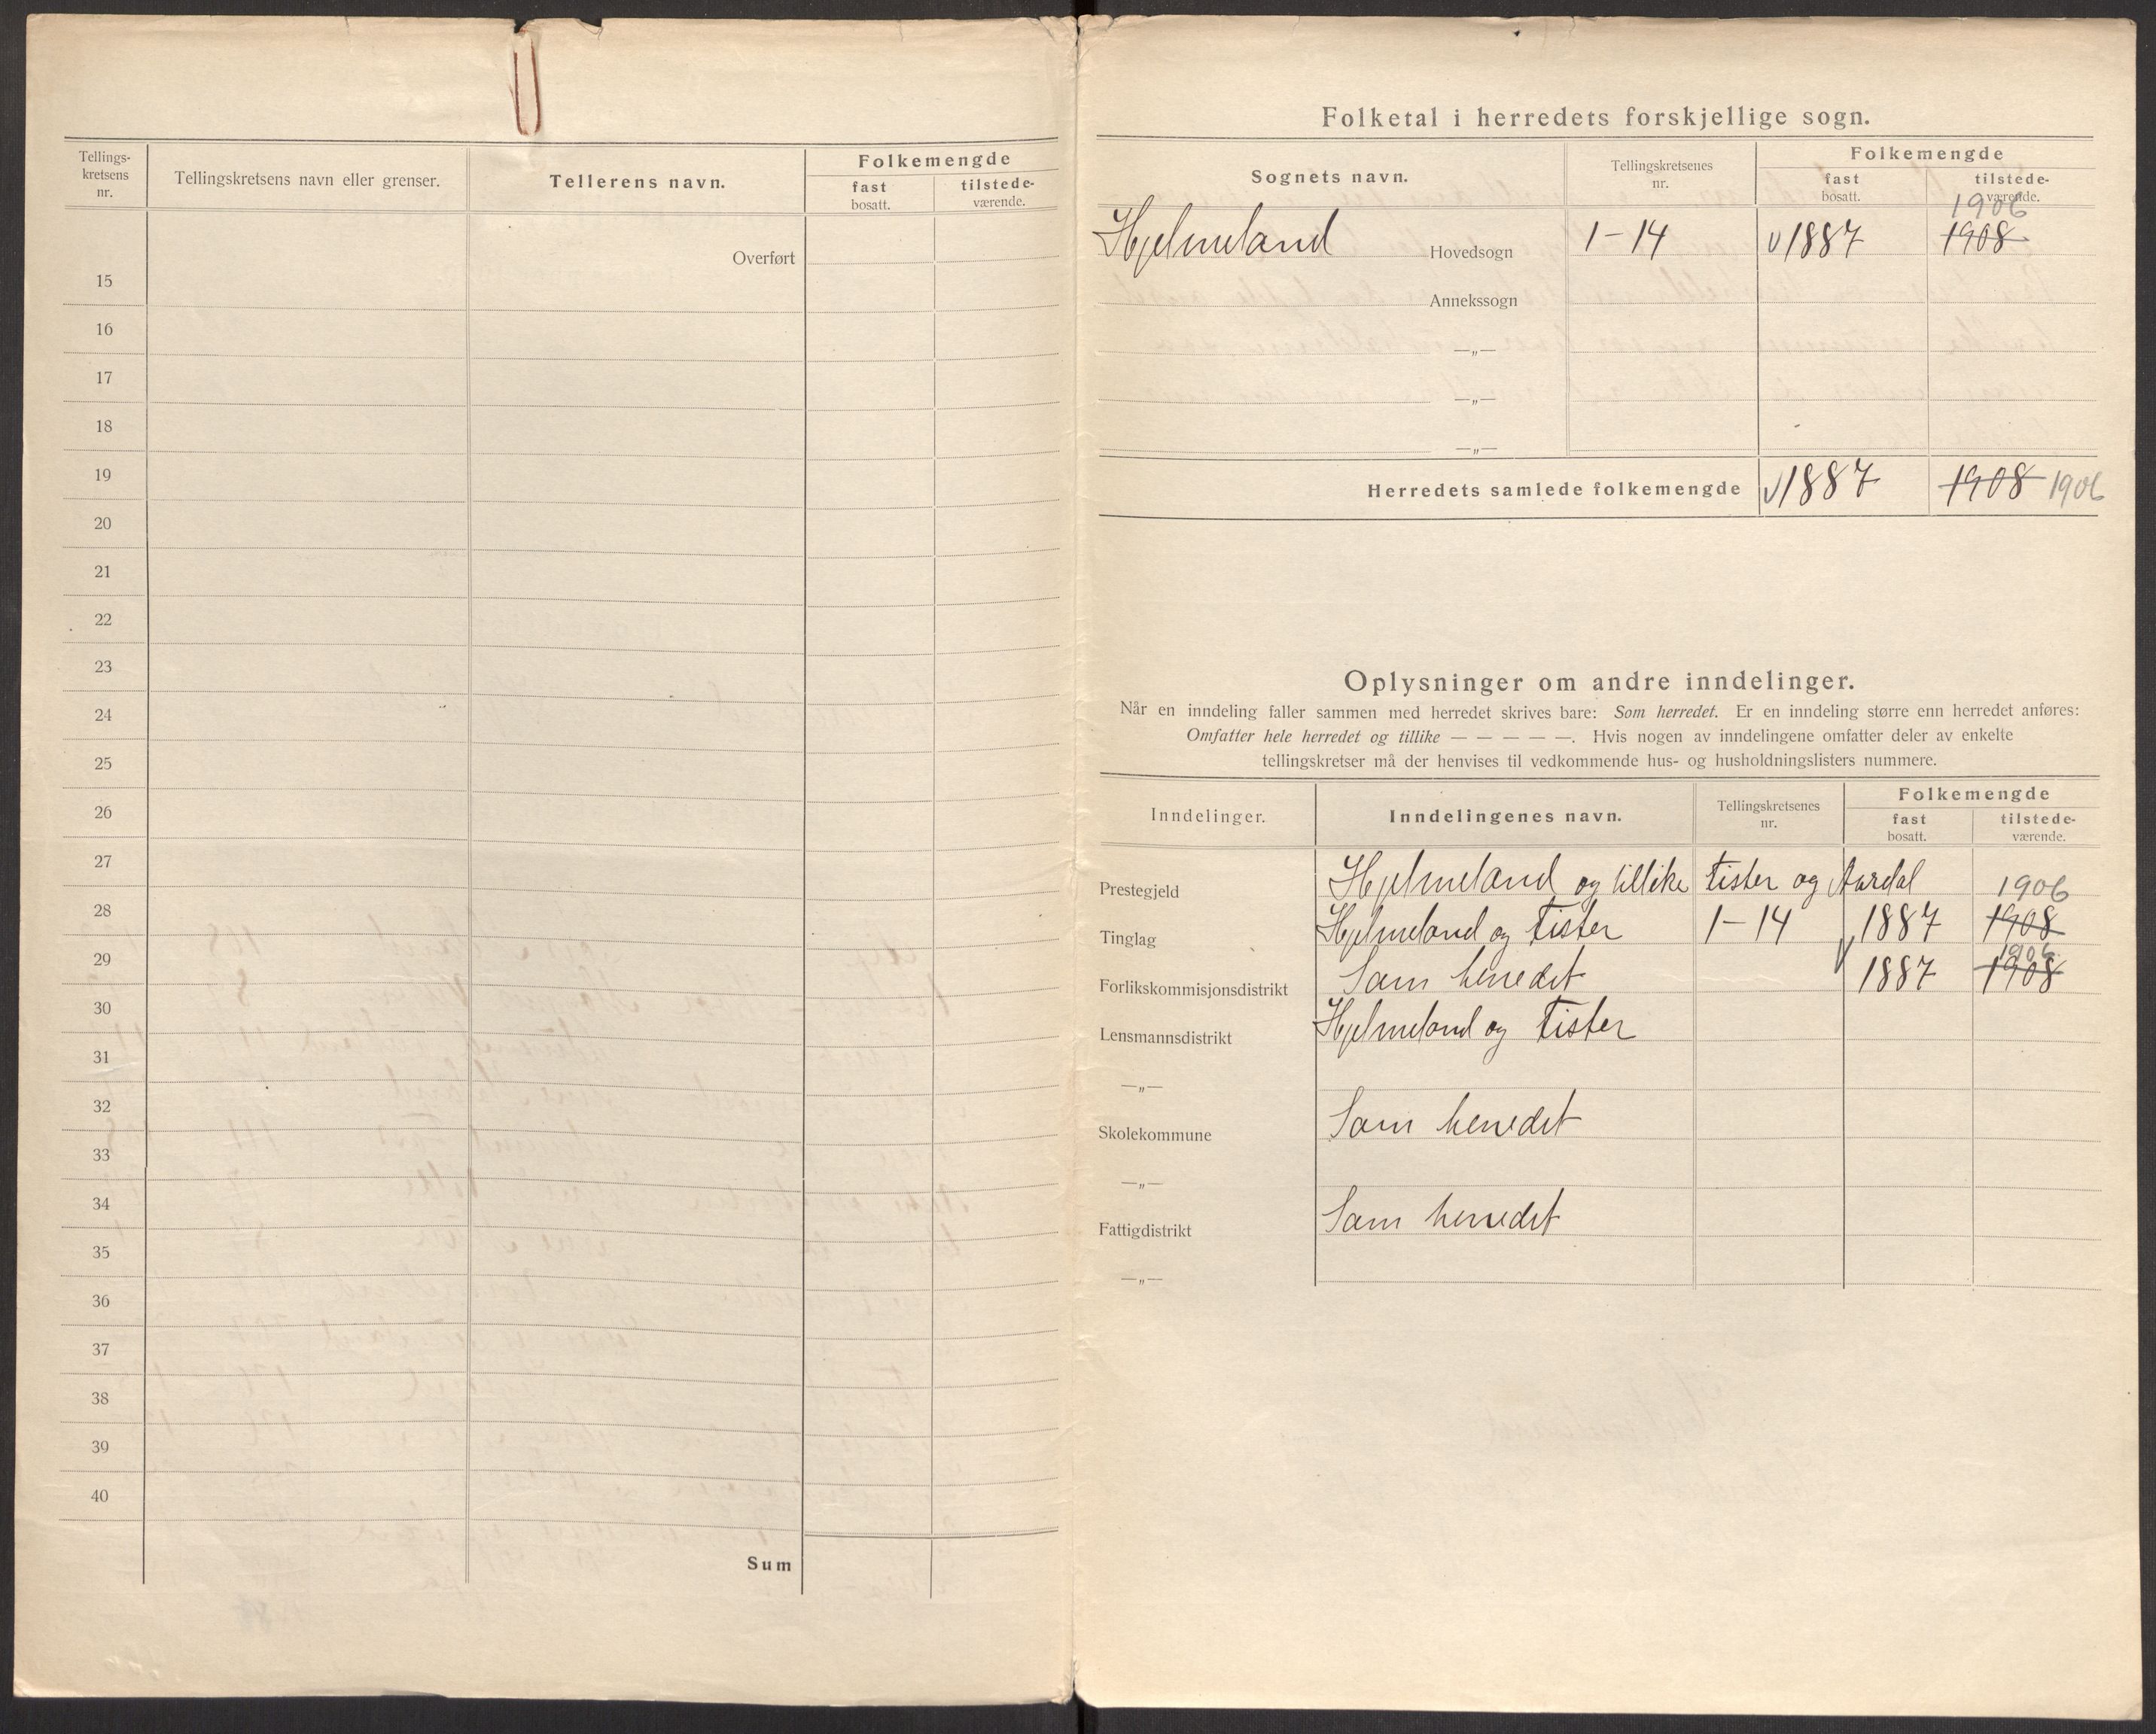 Tellings-
kretsens
nr.
Tellingskretsens navn eller grenser.
Tellerens navn.
Folkemengde
fast
bosatt.
tilstede-
værende.
Overført
15
16
17
18
19
20
21
22
23
24
25
26
27
28
29
30
31
32
33
34
35
36
37
38
39
40
Sum
Folketal i herredets forskjellige sogn.
Sognets navn.
Tellingskretsenes
nr.
Folkemengde
fast
bosatt.
tilstede-
værende.
1906
Hjelmeland Hovedsogn 1-14 √1887 1908
Annekssogn
—„—
—„—
—„—
Herredets samlede folkemengde √1887 1908 1906
Oplysninger om andre inndelinger.
Når en inndeling faller sammen med herredet skrives bare: Som herredet. Er en inndeling større enn herredet anføres:
Omfatter hele herredet og tillike — — — — —. Hvis nogen av inndelingene omfatter deler av enkelte
tellingskretser må der henvises til vedkommende hus- og husholdningslisters nummere.
Inndelinger.
Inndelingenes navn.
Tellingskretsenes
nr.
Folkemengde
fast
bosatt.
tilstede-
værende.
Prestegjeld Hjelmeland og tillike Fister og Aardal 1906
Tinglag Hjelmeland og Fister 1-14 1887 1908
1906
Forlikskommisjonsdistrikt Som herredet √ 1887 1908
Lensmannsdistrikt Hjelmeland og Fister
—„—
Skolekommune Som herredet
—„—
Fattigdistrikt Som herredet
—„—